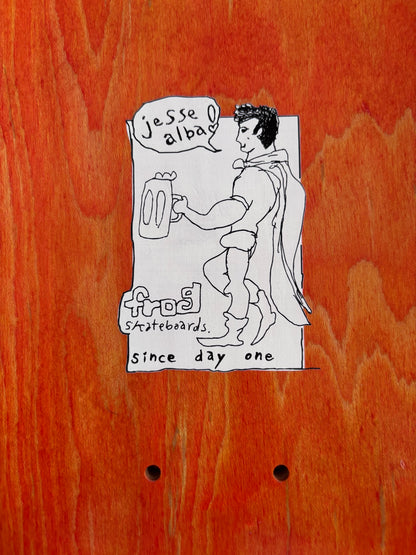 jesse
alba!
frog
skateboards.
since day one